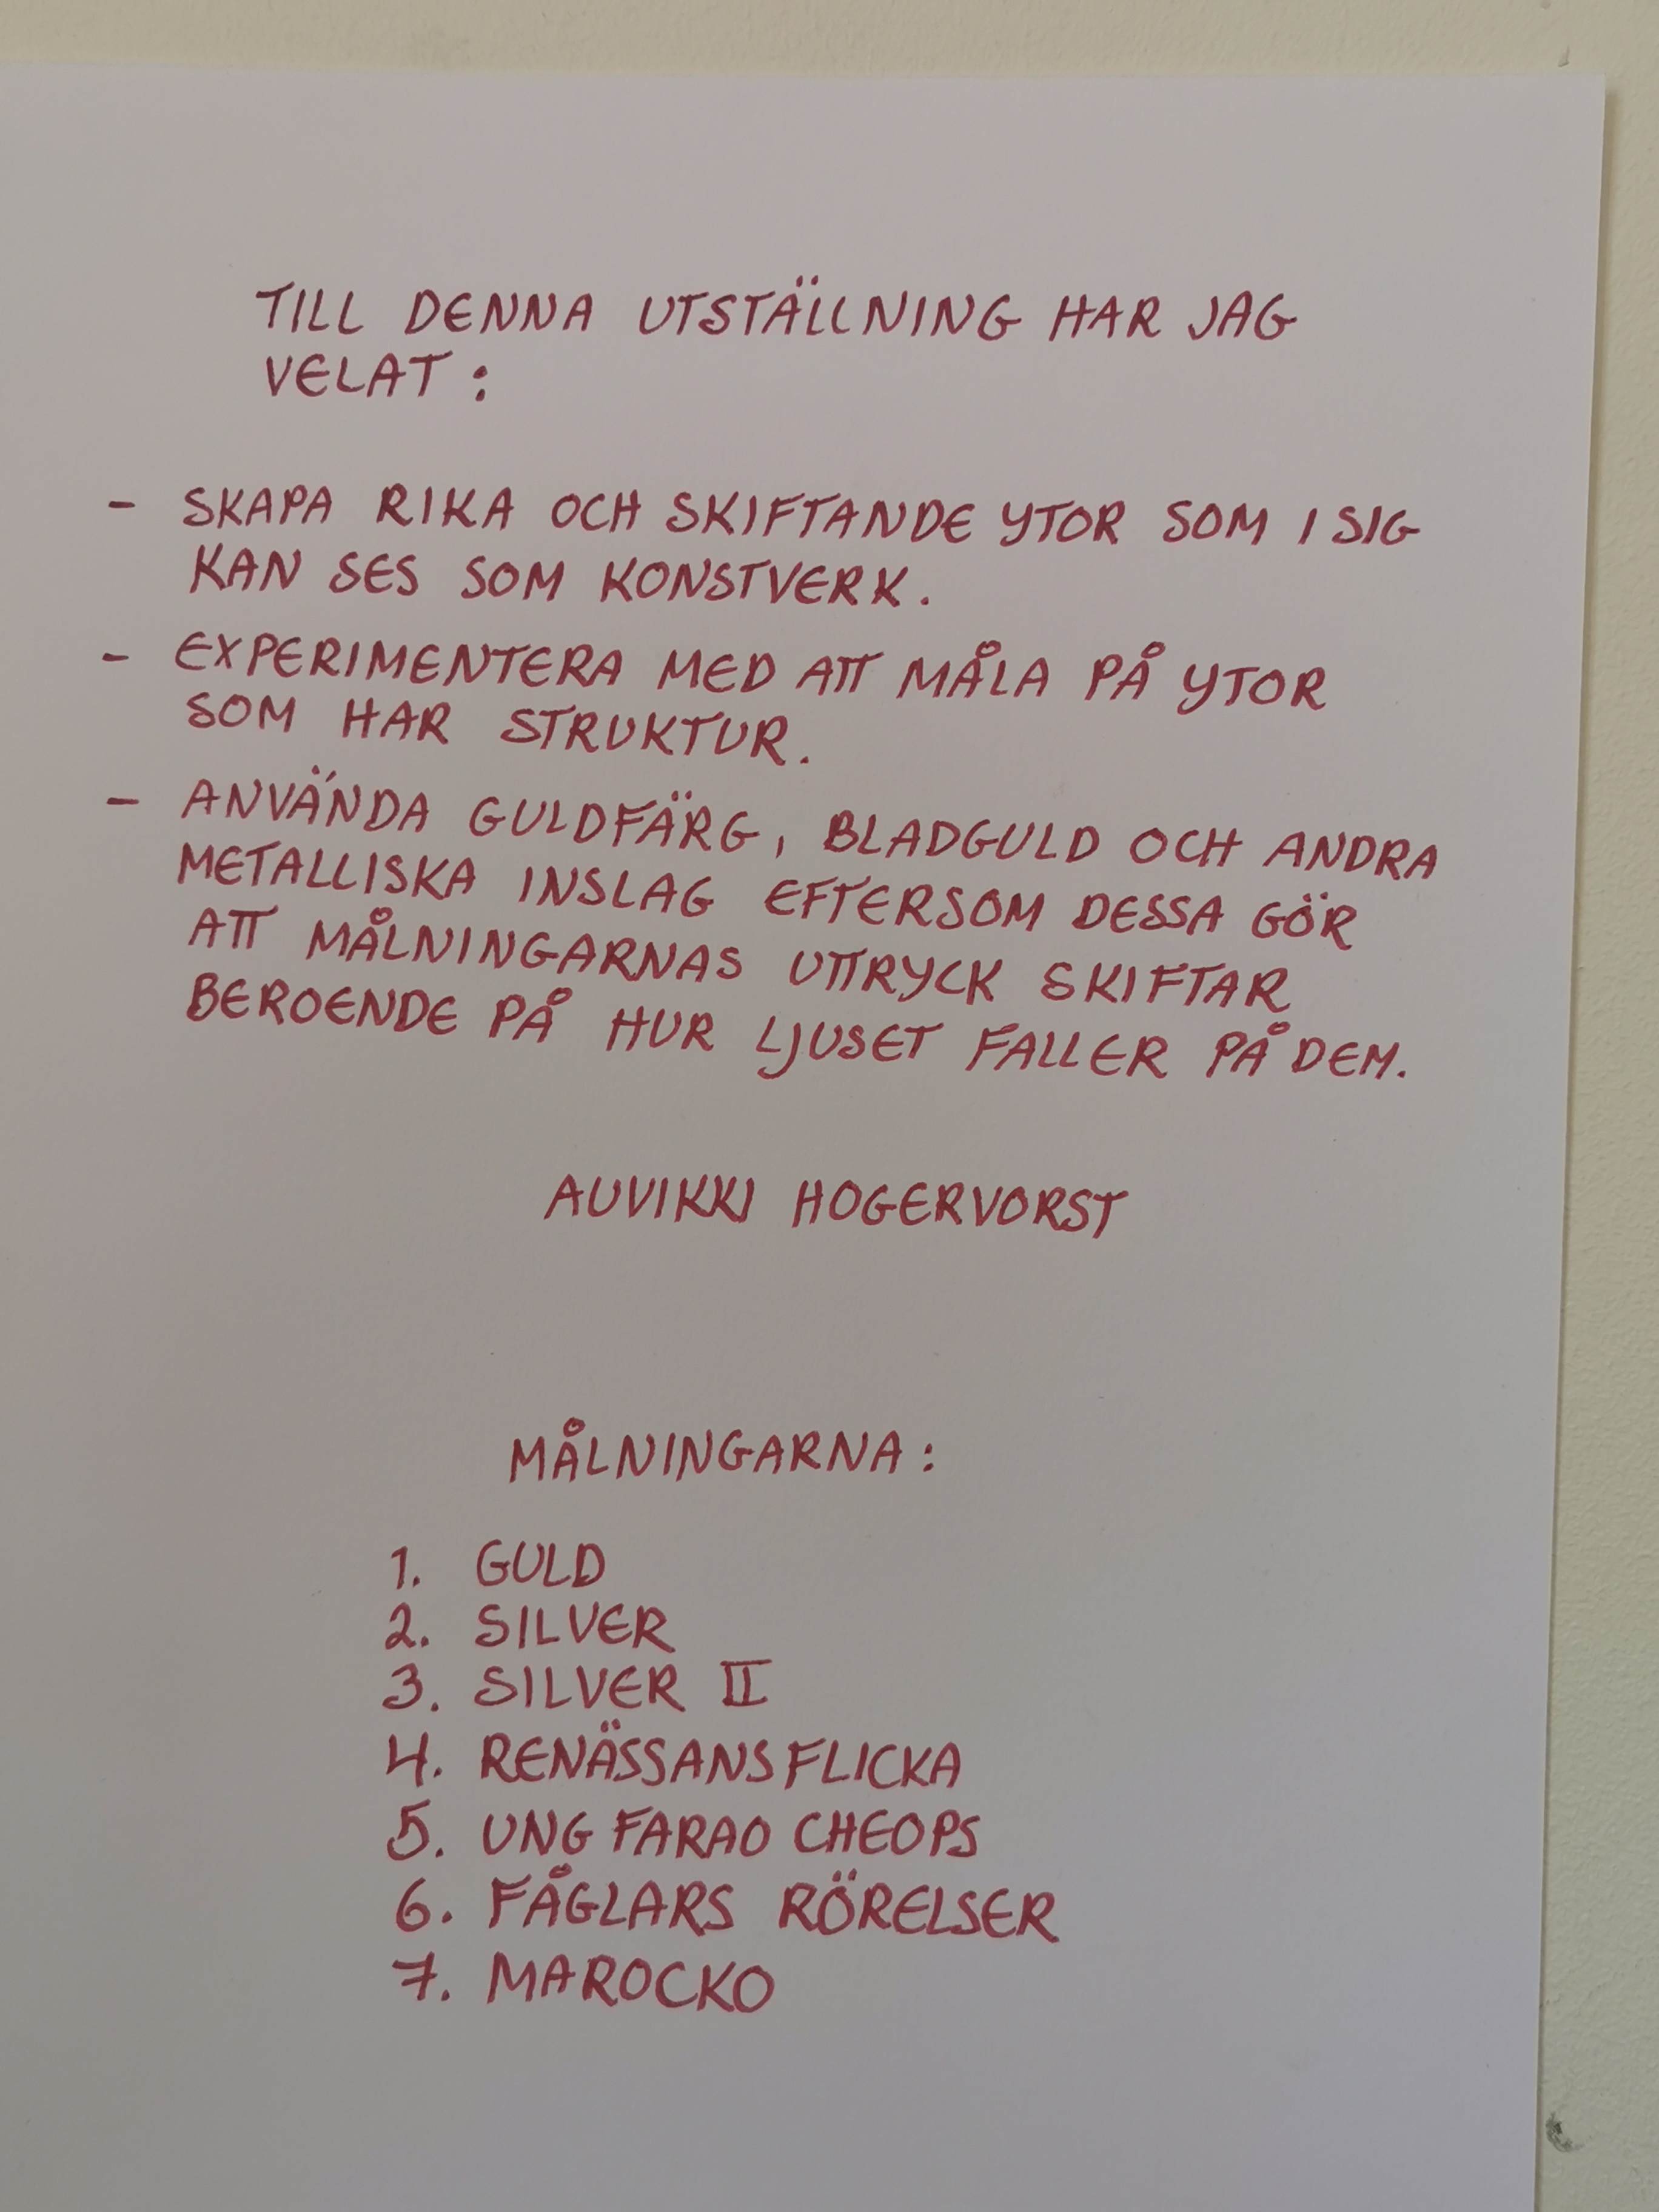 TILL DENNA UTSTÄLLNING HAR JAG
VELAT :
- SKAPA RIKA OCH SKIFTANDE YTOR SOM I SIG
KAN SES SOM KONSTVERK.
- EXPERIMENTERA MED ATT MÅLA PÅ YTOR
SOM HAR STRUKTUR.
- ANVÄNDA GULDFÄRG, BLADGULD OCH ANDRA
METALLISKA INSLAG EFTERSOM DESSA GÖR
ATT MÅLNINGARNAS UTTRYCK SKIFTAR
BEROENDE PÅ HUR LJUSET FALLER PÅ DEM.
AUVIKKI HOGERVORST
MÅLNINGARNA :
1. GULD
2. SILVER
3. SILVER II
4. RENÄSSANSFLICKA
5. UNG FARAO CHEOPS
6. FÅGLARS RÖRELSER
7. MAROCKO